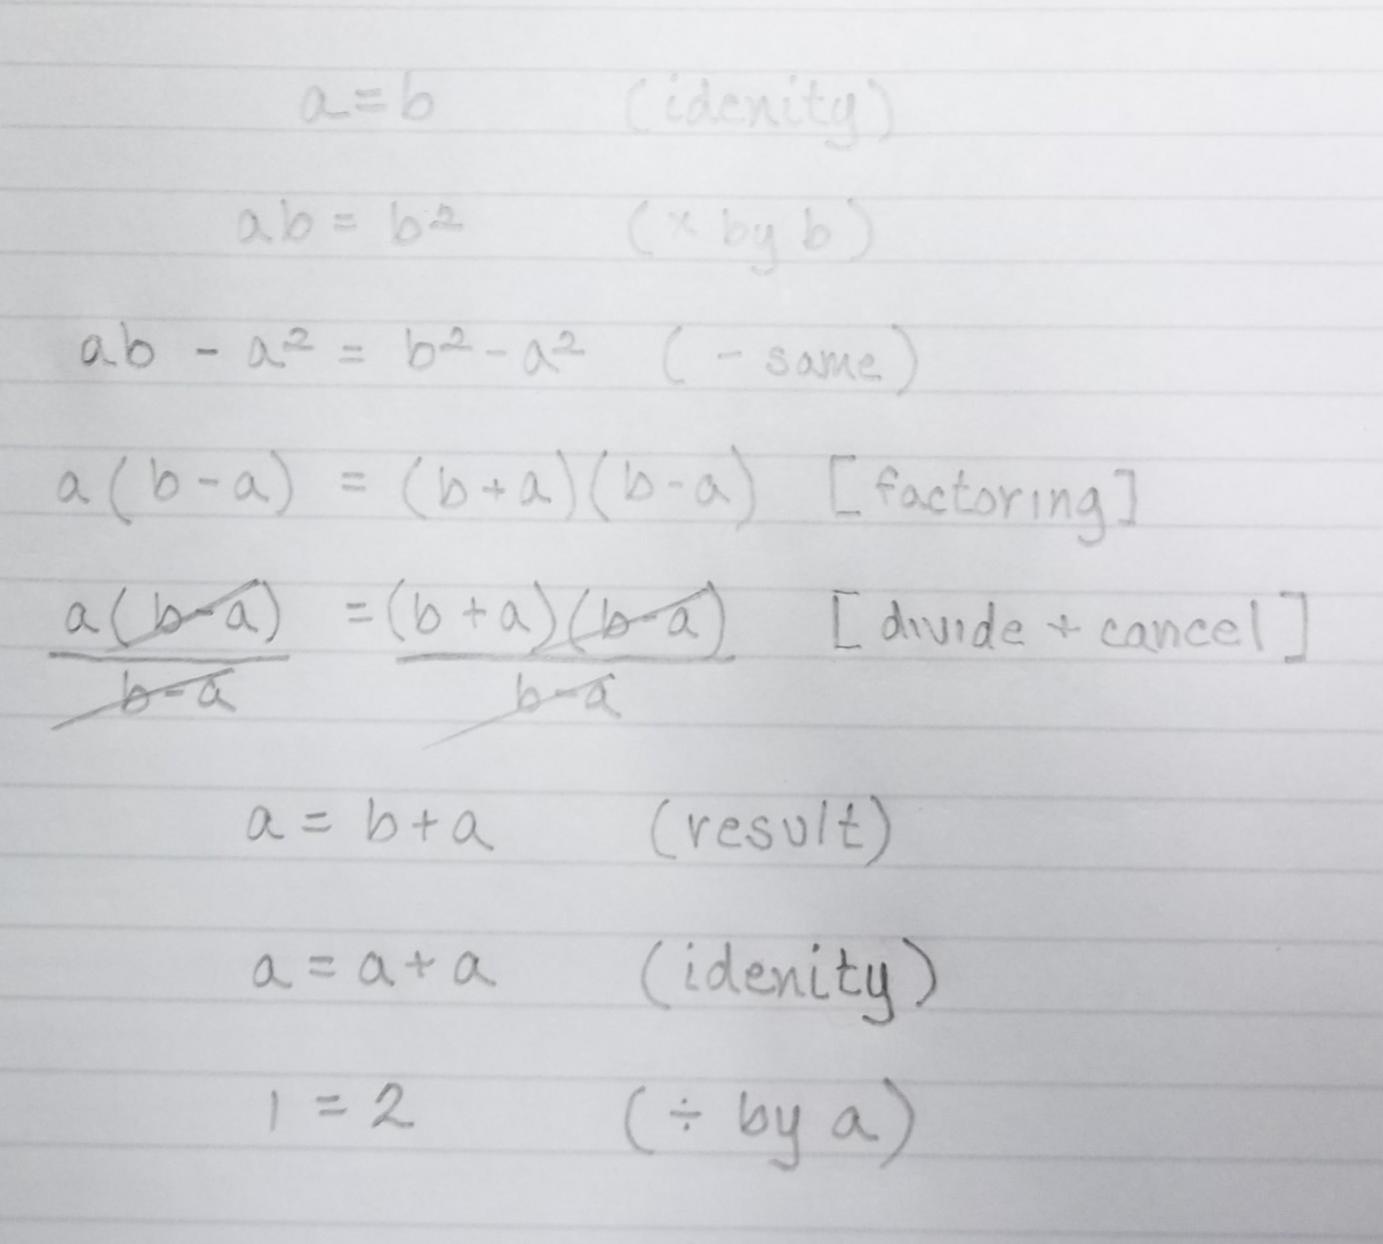 a = b (idenity)
ab = b² (× by b)
ab - a² = b² - a² (- same)
a(b-a) = (b+a)(b-a) [factoring]
a(b-a) = (b+a)(b-a) [divide + cancel]
b-a b-a
a = b+a (result)
a = a+a (idenity)
1 = 2 (÷ by a)